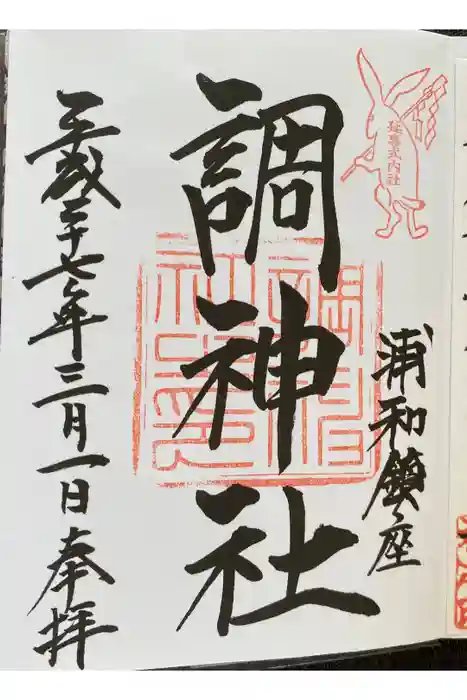 延喜式内社
浦和鎮座
調神社
調神社之印
平成二十七年三月一日奉拝